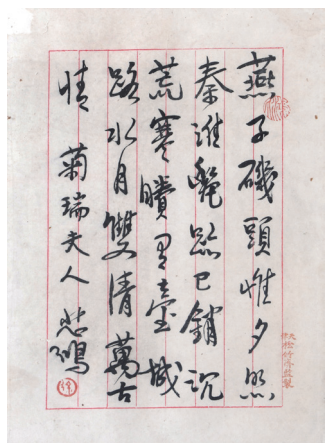 燕子磯頭惟夕照
秦淮艷跡已銷沉
荒寒賸有臺城
路水月雙清萬古
情 菊瑞夫人 悲鴻
徐